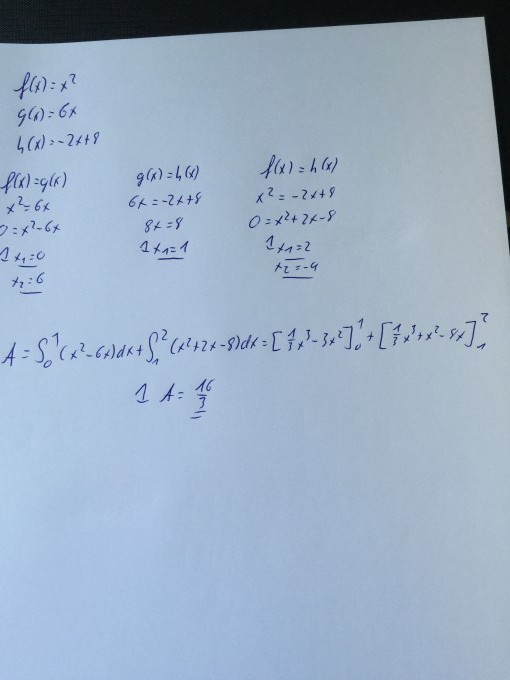 f(x)=x²
g(x)=6x
h(x)=-2x+8
f(x)=g(x)
x²=6x
0=x²-6x
1 x₁=0
x₂=6
g(x)=h(x)
6x=-2x+8
8x=8
1 x₁=1
f(x)=h(x)
x²=-2x+8
0=x²+2x-8
1 x₁=2
x₂=-4
A=∫₀¹(x²-6x)dx+∫₁²(x²+2x-8)dx=[⅓x³-3x²]₀¹+[⅓x³+x²-8x]₁²
1 A=16/3